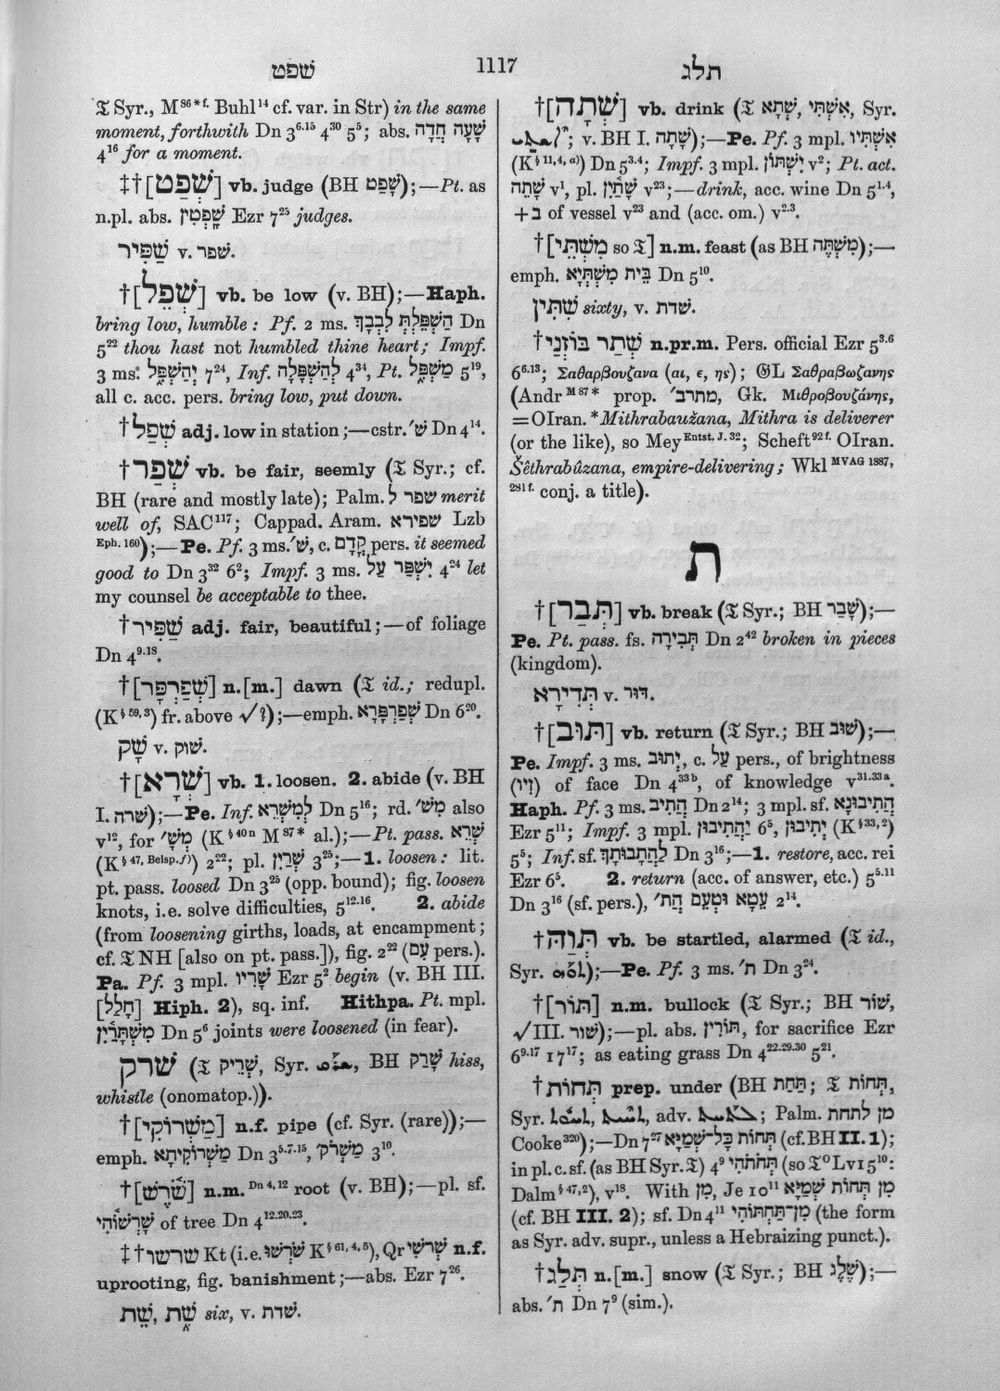 שׁפט
1117
תלג
𝔗 Syr., M⁸⁶*ᶠ· Buhl¹⁴ cf. var. in Str) in the same
moment, forthwith Dn 3⁶·¹⁵ 4³⁰ 5⁵; abs. שָׁעָה חֲדָה
4¹⁶ for a moment.
‡†[שְׁפַט] vb. judge (BH שָׁפַט);—Pt. as
n.pl. abs. שָׁפְטִין Ezr 7²⁵ judges.
שַׁפִּיר v. שׁפר.
†[שְׁפֵל] vb. be low (v. BH);—Haph.
bring low, humble: Pf. 2 ms. הַשְׁפֵּלְתְּ לִבְבָךְ Dn
5²² thou hast not humbled thine heart; Impf.
3 ms. יְהַשְׁפִּל 7²⁴, Inf. לְהַשְׁפָּלָה 4³⁴, Pt. מַשְׁפִּל 5¹⁹,
all c. acc. pers. bring low, put down.
†שְׁפַל adj. low in station;—cstr. שׁ׳ Dn 4¹⁴.
†שְׁפַר vb. be fair, seemly (𝔗 Syr.; cf.
BH (rare and mostly late); Palm. שפר ל merit
well of, SAC¹¹⁷; Cappad. Aram. שפירא Lzb
Eph. 160);—Pe. Pf. 3 ms. שׁ׳, c. קֳדָם pers. it seemed
good to Dn 3³² 6²; Impf. 3 ms. יִשְׁפַּר עַל 4²⁴ let
my counsel be acceptable to thee.
†שַׁפִּיר adj. fair, beautiful;—of foliage
Dn 4⁹·¹⁸.
†[שְׁפַרְפָּר] n.[m.] dawn (𝔗 id.; redupl.
(K§ 59, 3) fr. above √?);—emph. שְׁפַּרְפָּרָא Dn 6²⁰.
שָׁק v. שׁוק.
†[שְׁרָא] vb. 1. loosen. 2. abide (v. BH
I. שׁרה);—Pe. Inf. לְמִשְׁרֵא Dn 5¹⁶; rd. מִשׁ׳ also
v¹², for מְשׁ׳ (K§ 40n M⁸⁷* al.);—Pt. pass. שְׁרֵא
(K§ 47, Beisp. f)) 2²²; pl. שְׁרַיִן 3²⁵;—1. loosen: lit.
pt. pass. loosed Dn 3²⁵ (opp. bound); fig. loosen
knots, i.e. solve difficulties, 5¹²·¹⁶. 2. abide
(from loosening girths, loads, at encampment;
cf. 𝔗 NH [also on pt. pass.]), fig. 2²² (עִם pers.).
Pa. Pf. 3 mpl. שָׁרִיו Ezr 5² begin (v. BH III.
[חָלַל] Hiph. 2), sq. inf. Hithpa. Pt. mpl.
מִשְׁתָּרַיִן Dn 5⁶ joints were loosened (in fear).
שׁרק (𝔗 שְׁרֵיק, Syr. ܫܪܩ, BH שָׁרַק hiss,
whistle (onomatop.)).
†[מַשְׁרוֹקִי] n.f. pipe (cf. Syr. (rare));—
emph. מַשְׁרוֹקִיתָא Dn 3⁵·⁷·¹⁵, מַשְׁרֹק׳ 3¹⁰.
†[שֹׁרֶשׁ] n.m. Dn 4, 12 root (v. BH);—pl. sf.
שָׁרְשׁוֹהִי of tree Dn 4¹²·²⁰·²³.
‡†שרשו Kt (i.e. שְׁרֹשׁוּ K§ 61, 4, b), Qr שְׁרֹשִׁי n.f.
uprooting, fig. banishment;—abs. Ezr 7²⁶.
שֵׁת, שִׁת six, v. שׁדת.
†[שְׁתָה] vb. drink (𝔗 שְׁתָא, אִשְׁתִּי, Syr.
ܐܫܬܝ; v. BH I. שָׁתָה);—Pe. Pf. 3 mpl. אִשְׁתִּיו
(K§ 11, 4, a)) Dn 5³·⁴; Impf. 3 mpl. יִשְׁתּוֹן v²; Pt. act.
שָׁתֵה v¹, pl. שָׁתַיִן v²³;—drink, acc. wine Dn 5¹·⁴,
+ב of vessel v²³ and (acc. om.) v²·³.
†[מִשְׁתֵּי so 𝔗] n.m. feast (as BH מִשְׁתֶּה);—
emph. בֵּית מִשְׁתְּיָא Dn 5¹⁰.
שִׁתִּין sixty, v. שׁדת.
†שְׁתַר בּוֹזְנַי n.pr.m. Pers. official Ezr 5³·⁶
6⁶·¹³; Σαθαρβουζανα (αι, ε, ης); 𝔊L Σαθραβωζανης
(Andr M 87* prop. מתרב׳, Gk. Μιθροβουζάνης,
=OIran. *Mithrabaužana, Mithra is deliverer
(or the like), so Mey Entst. J. 32; Scheft⁹²ᶠ· OIran.
Šêthrabûzana, empire-delivering; Wkl MVAG 1887,
281 f. conj. a title).
ת
†[תְּבַר] vb. break (𝔗 Syr.; BH שָׁבַר);—
Pe. Pt. pass. fs. תְּבִירָה Dn 2⁴² broken in pieces
(kingdom).
תְּדִירָא v. דּוּר.
†[תּוּב] vb. return (𝔗 Syr.; BH שׁוּב);—
Pe. Impf. 3 ms. יְתוּב, c. עַל pers., of brightness
(זִיו) of face Dn 4³³ᵇ, of knowledge v³¹·³³ᵃ.
Haph. Pf. 3 ms. הֲתִיב Dn 2¹⁴; 3 mpl. sf. הֲתִיבוּנָא
Ezr 5¹¹; Impf. 3 mpl. יַהֲתִיבוּן 6⁵, יְתִיבוּן (K§ 33, 2)
5⁵; Inf. sf. לַהֲתָבוּתָךְ Dn 3¹⁶;—1. restore, acc. rei
Ezr 6⁵. 2. return (acc. of answer, etc.) 5⁵·¹¹
Dn 3¹⁶ (sf. pers.), הֲת׳ עֵטָא וּטְעֵם 2¹⁴.
†תְּוַהּ vb. be startled, alarmed (𝔗 id.,
Syr. ܬܘܗ);—Pe. Pf. 3 ms. ת׳ Dn 3²⁴.
†[תּוֹר] n.m. bullock (𝔗 Syr.; BH שׁוֹר,
√III. שׁור);—pl. abs. תּוֹרִין, for sacrifice Ezr
6⁹·¹⁷ 7¹⁷; as eating grass Dn 4²²·²⁹·³⁰ 5²¹.
†תְּחוֹת prep. under (BH תַּחַת; 𝔗 תְּחוֹת,
Syr. adv. Palm. מן לתחת
Cooke³²⁰);—Dn 7²⁷ תְּחוֹת כָּל־שְׁמַיָּא (cf. BH II. 1);
in pl. c. sf. (as BH Syr. 𝔗) 4⁹ תְּחֹתֹהִי (so 𝔗ᴼ Lv 15¹⁰:
Dalm§ 47, 2), v¹⁸. With מִן, Je 10¹¹ מִן תְּחוֹת שְׁמַיָּא
(cf. BH III. 2); sf. Dn 4¹¹ מִן־תַּחְתּוֹהִי (the form
as Syr. adv. supr., unless a Hebraizing punct.).
†תְּלַג n.[m.] snow (𝔗 Syr.; BH שֶׁלֶג);—
abs. ת׳ Dn 7⁹ (sim.).